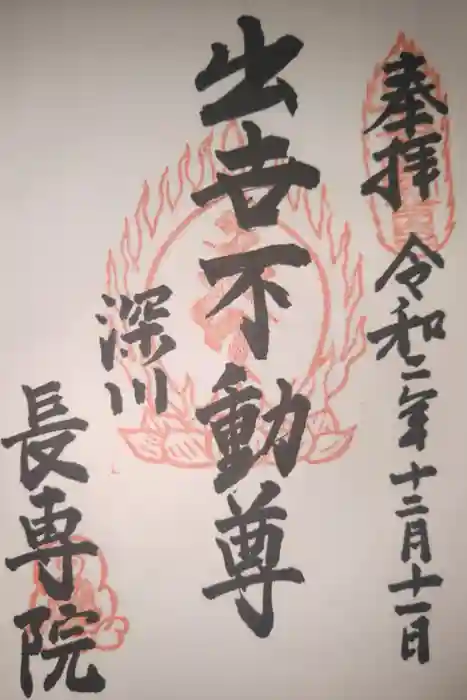 奉拝 令和二年十二月十一日
出吉不動尊
深川
長専院